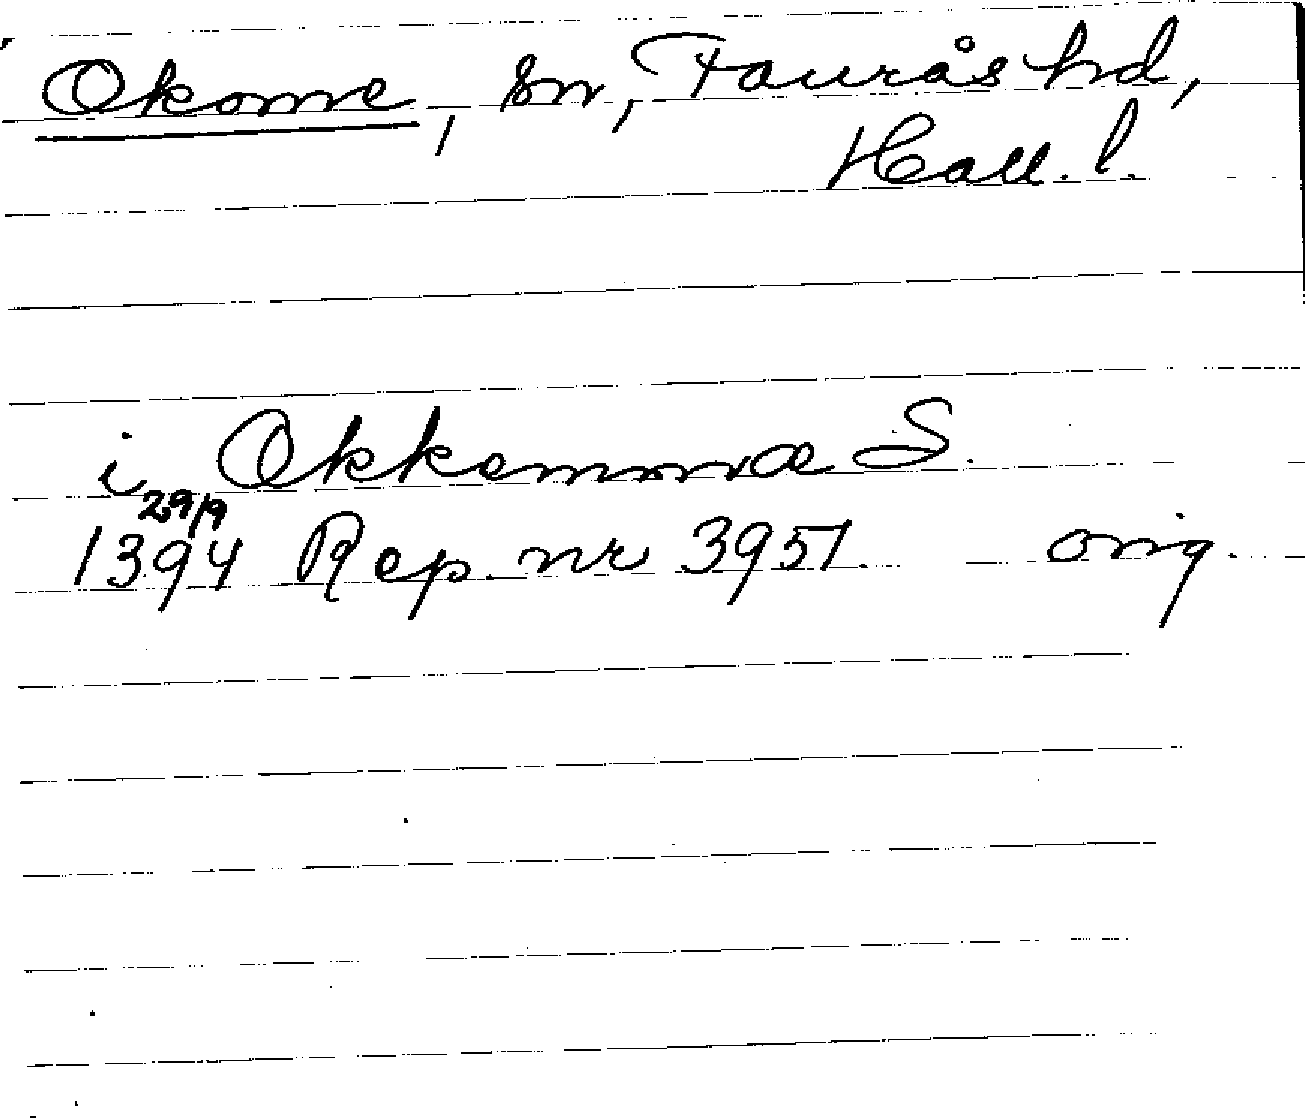 Okome, sn, Faurås hd,
Hall. l.
i Okkemmæ S.
29/9
1394 Rep. nr 3951. orig.